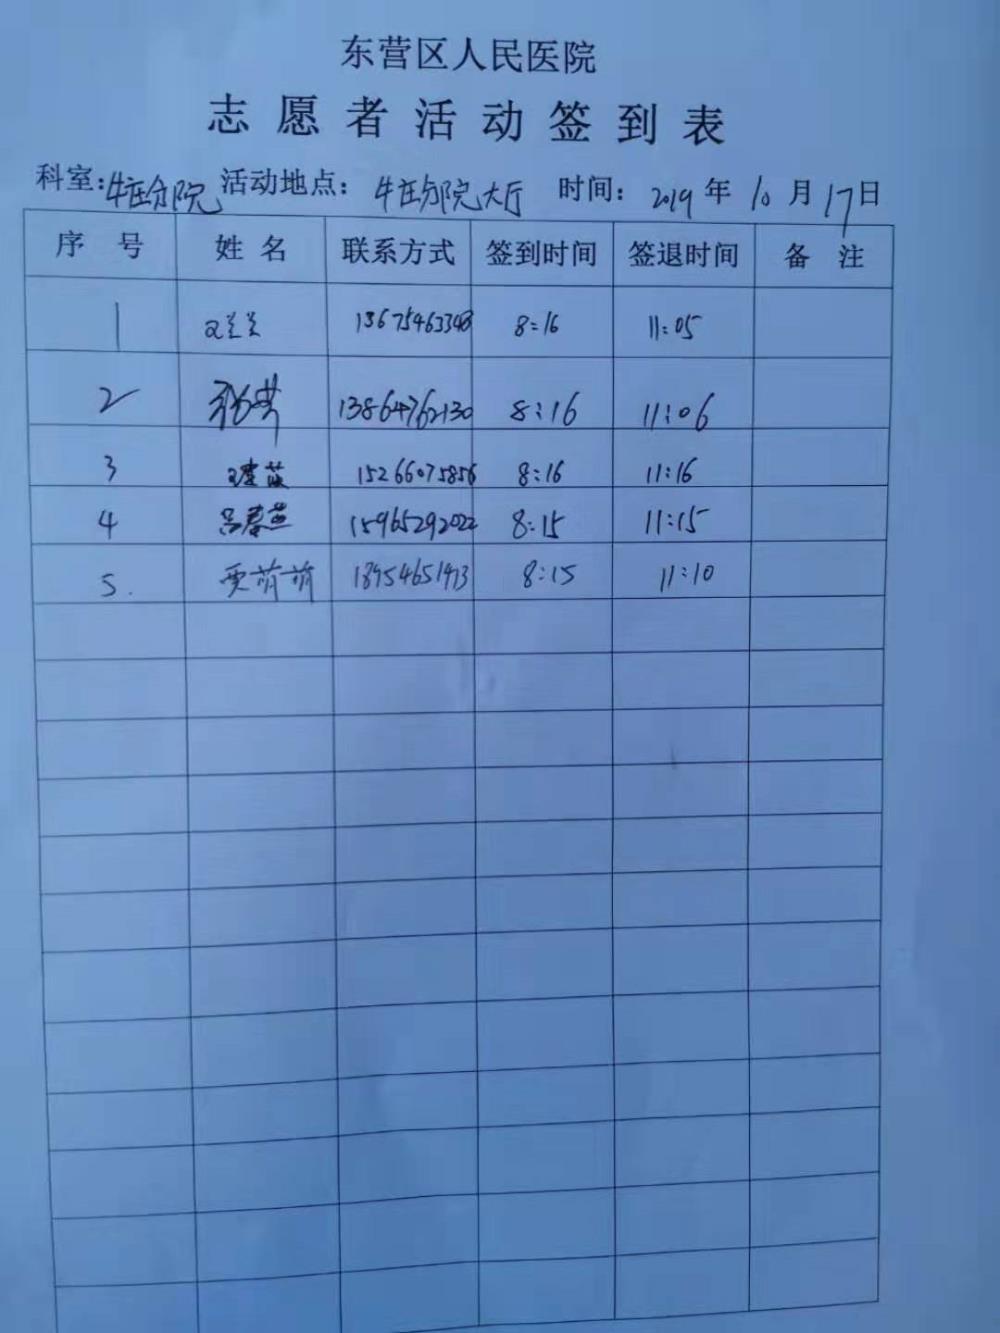 东营区人民医院
志愿者活动签到表
科室:牛庄分院 活动地点:牛庄分院大厅 时间:2019年10月17日
序号 姓名 联系方式 签到时间 签退时间 备注
1 王兰兰 13675463348 8:16 11:05
2 13864762130 8:16 11:06
3 15266075856 8:16 11:16
4 吕春芝 15965292022 8:15 11:15
5. 贾萌萌 18954651473 8:15 11:10